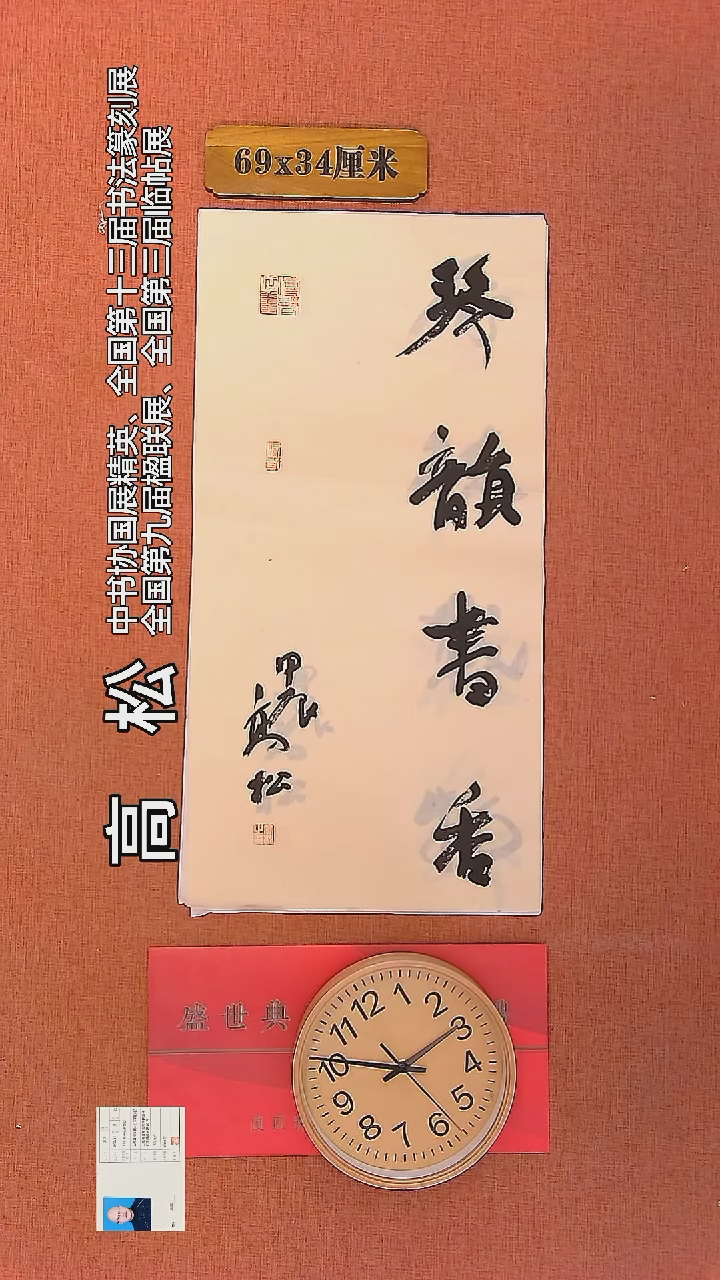 69x34厘米
中书协国展精英、全国第十三届书法篆刻展
全国第九届楹联展、全国第三届临帖展
高 松
琴韻書香
甲辰
高松
盛世典
12
1
2
3
4
5
6
7
8
9
10
11